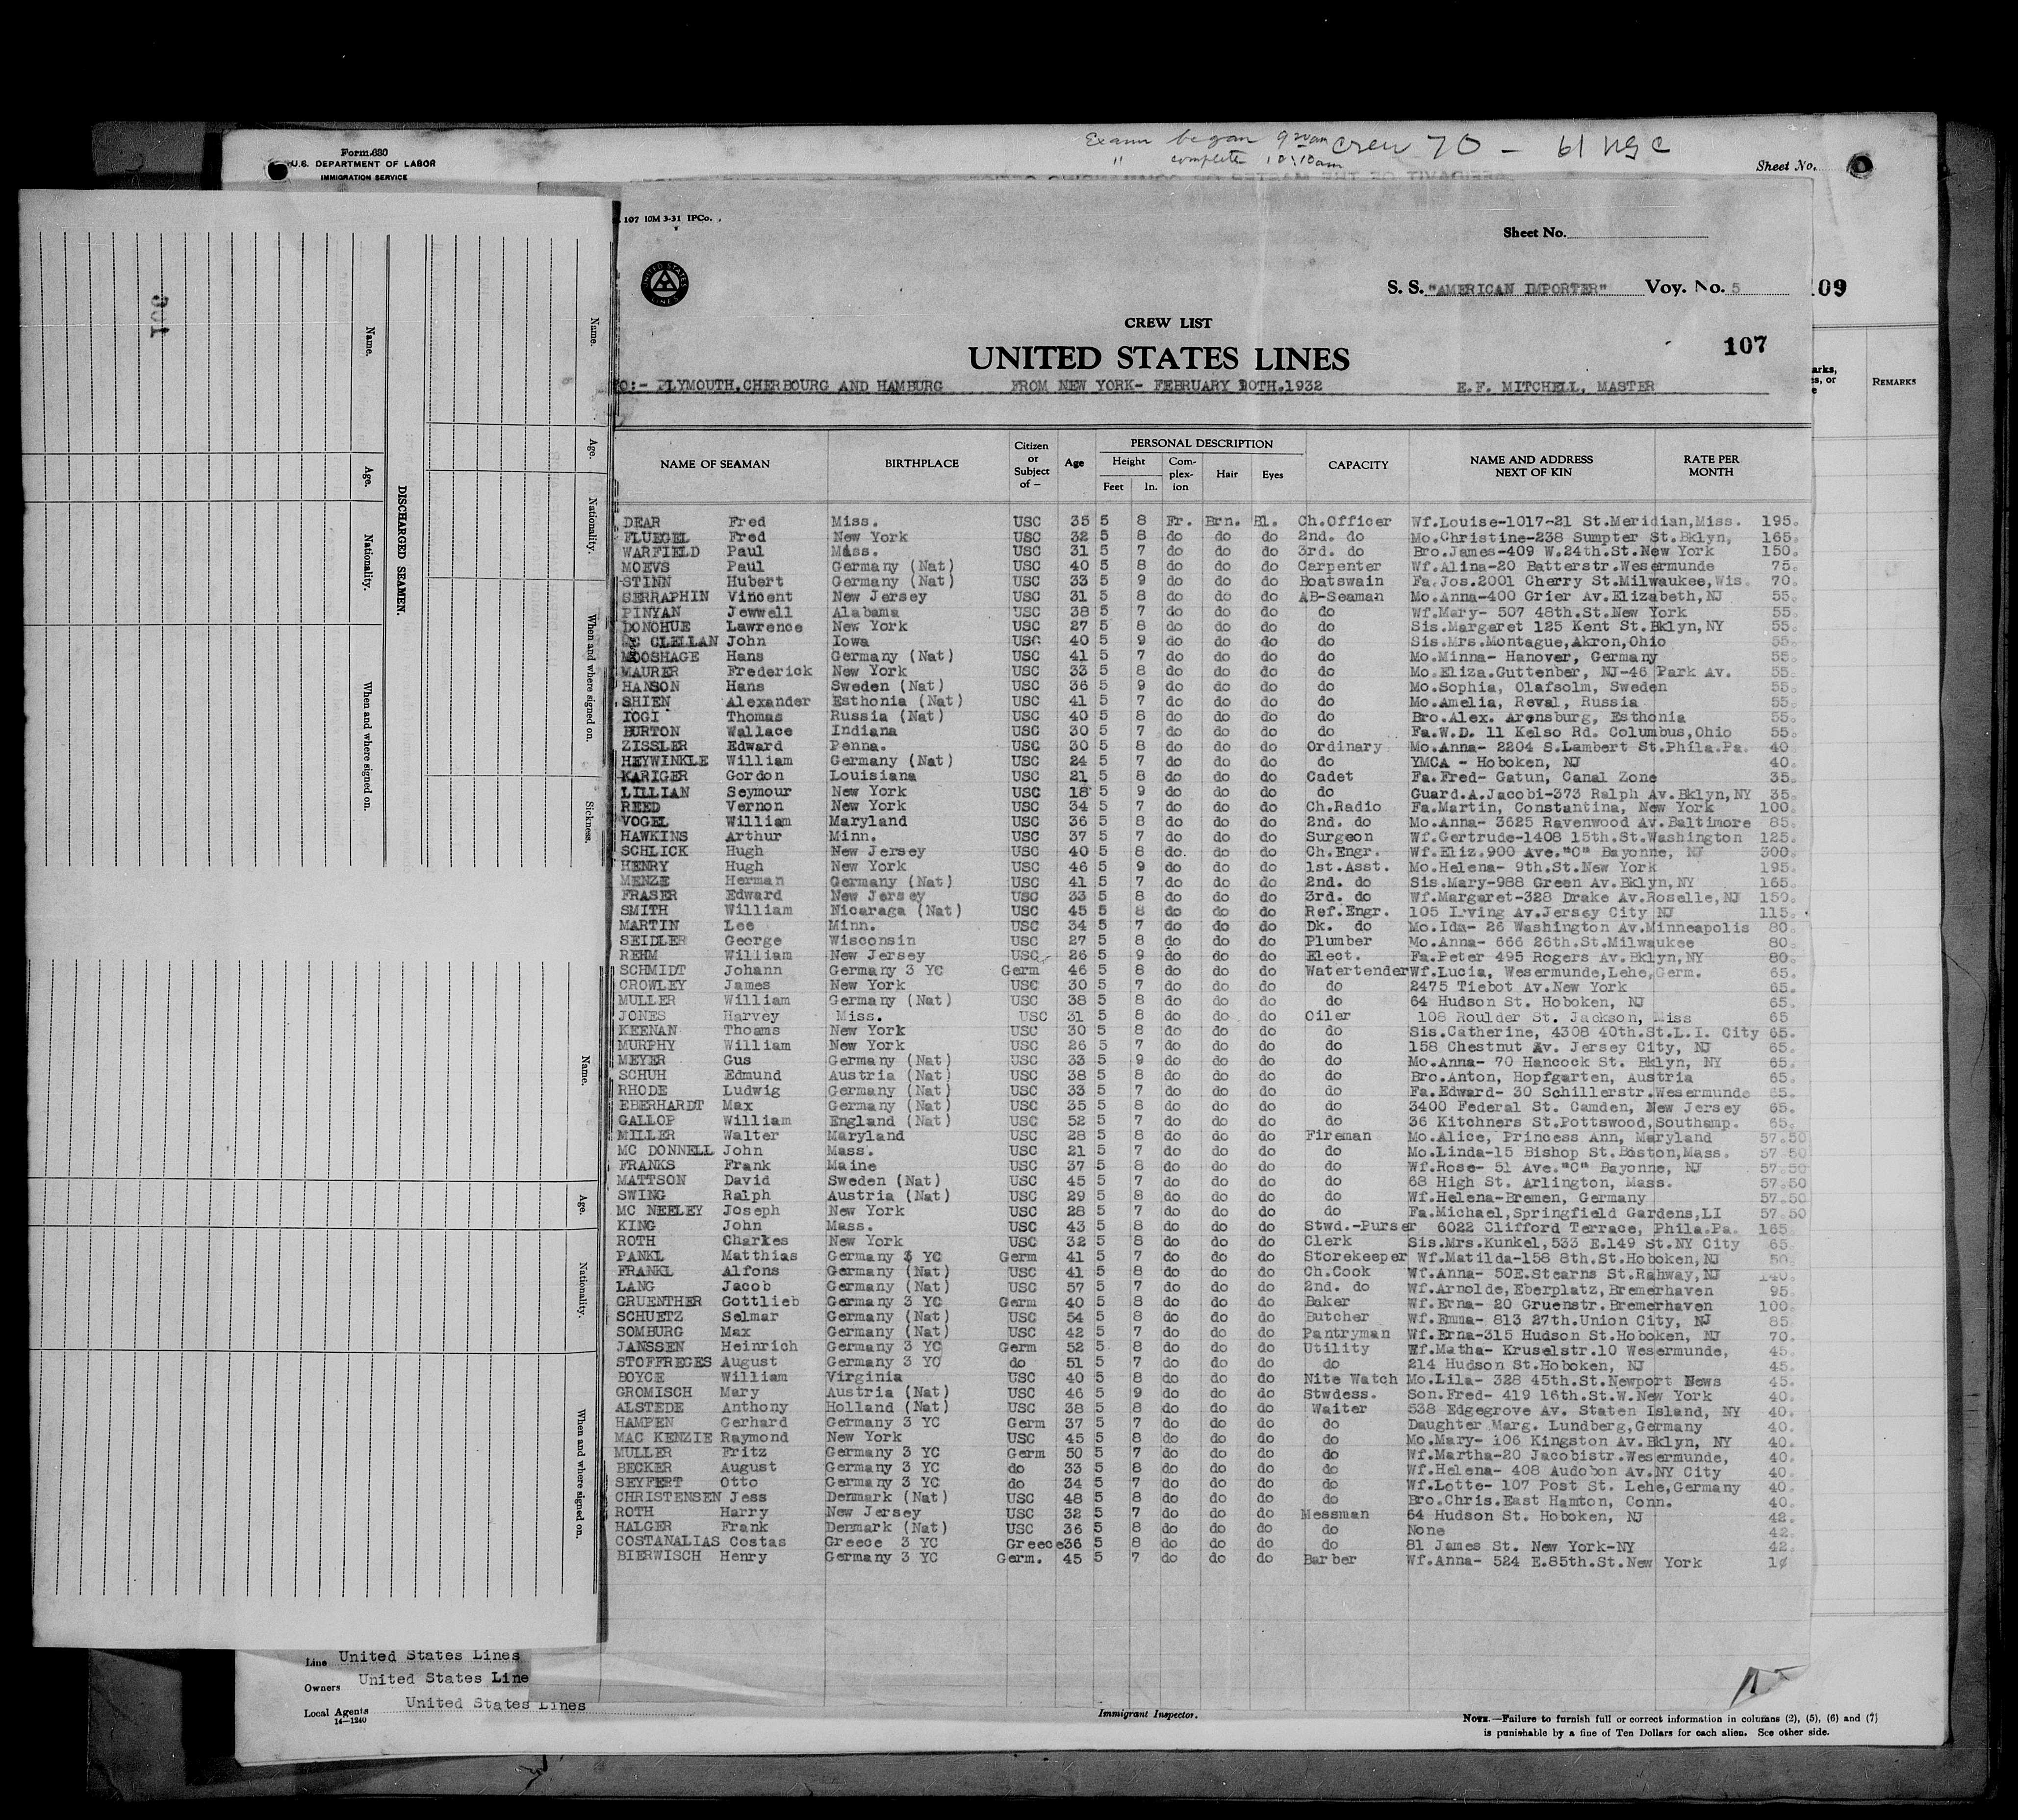 Exam began 9 20am Crew 70 - 61 USC
" complete 10:10am
Form 680
U.S. DEPARTMENT OF LABOR
IMMIGRATION SERVICE
Sheet No.
107 10M 3-31 IPCo.
Sheet No.
UNITED STATES LINES
S. S. "AMERICAN IMPORTER" Voy. No. 5
109
CREW LIST
107
UNITED STATES LINES
TO:- PLYMOUTH, CHERBOURG AND HAMBURG FROM NEW YORK- FEBRUARY 10TH.1932 E.F. MITCHELL, MASTER
REMARKS
NAME OF SEAMAN BIRTHPLACE Citizen or Subject of — Age PERSONAL DESCRIPTION Height Feet In. Complexion Hair Eyes CAPACITY NAME AND ADDRESS NEXT OF KIN RATE PER MONTH
DEAR Fred Miss. USC 35 5 8 Fr. Brn. Bl. Ch.Officer Wf.Louise-1017-21 St.Meridian,Miss. 195.
FLUEGEL Fred New York USC 32 5 8 do do do 2nd. do Mo.Christine-238 Sumpter St.Bklyn, 165.
WARFIELD Paul Miss. USC 31 5 7 do do do 3rd. do Bro.James-409 W.24th.St.New York 150.
MOEVS Paul Germany (Nat) USC 40 5 8 do do do Carpenter Wf.Alina-20 Batterstr.Wesermunde 75.
STINN Hubert Germany (Nat) USC 33 5 9 do do do Boatswain Fa.Jos.2001 Cherry St.Milwaukee,Wis. 70.
SERRAPHIN Vincent New Jersey USC 31 5 8 do do do AB-Seaman Mo.Anna-400 Grier Av.Elizabeth,NJ 55.
PINYAN Jewwell Alabama USC 38 5 7 do do do do Wf.Mary- 507 48th.St.New York 55.
DONOHUE Lawrence New York USC 27 5 8 do do do do Sis.Margaret 125 Kent St.Bklyn,NY 55.
MC CLELLAN John Iowa USC 40 5 9 do do do do Sis.Mrs.Montague,Akron,Ohio 55.
MOOSHAGE Hans Germany (Nat) USC 41 5 7 do do do do Mo.Minna- Hanover, Germany 55.
MAURER Frederick New York USC 33 5 8 do do do do Mo.Eliza.Guttenber, NJ-46 Park Av. 55.
HANSON Hans Sweden (Nat) USC 36 5 9 do do do do Mo.Sophia, Olafsolm, Sweden 55.
SHIEN Alexander Esthonia (Nat) USC 41 5 7 do do do do Mo.Amelia, Reval, Russia 55.
IOGI Thomas Russia (Nat) USC 40 5 8 do do do do Bro.Alex. Arensburg, Esthonia 55.
BURTON Wallace Indiana USC 30 5 7 do do do do Fa.W.D. 11 Kelso Rd. Columbus,Ohio 55.
ZISSLER Edward Penna. USC 30 5 8 do do do Ordinary Mo.Anna- 2204 S.Lambert St.Phila.Pa. 40.
HEYWINKLE William Germany (Nat) USC 24 5 7 do do do do YMCA - Hoboken, NJ 40.
KARIGER Gordon Louisiana USC 21 5 8 do do do Cadet Fa.Fred- Gatun, Canal Zone 35.
LILLIAN Seymour New York USC 18 5 9 do do do do Guard.A.Jacobi-373 Ralph Av.Bklyn,NY 35.
REED Vernon New York USC 34 5 7 do do do Ch.Radio Fa.Martin, Constantina, New York 100.
VOGEL William Maryland USC 36 5 8 do do do 2nd. do Mo.Anna- 3625 Ravenwood Av.Baltimore 85.
HAWKINS Arthur Minn. USC 37 5 7 do do do Surgeon Wf.Gertrude-1408 15th.St.Washington 125.
SCHLICK Hugh New Jersey USC 40 5 8 do. do do Ch.Engr. Wf.Eliz.900 Ave."C" Bayonne, NJ 300.
HENRY Hugh New York USC 46 5 9 do do do 1st.Asst. Mo.Helena- 9th.St.New York 195.
MENZE Herman Germany (Nat) USC 41 5 7 do do do 2nd. do Sis.Mary-988 Green Av.Bklyn,NY 165.
FRASER Edward New Jersey USC 33 5 8 do do do 3rd. do Wf.Margaret-328 Drake Av.Roselle,NJ 150.
SMITH William Nicaraga (Nat) USC 45 5 8 do do do Ref.Engr. 105 Irving Av.Jersey City NJ 115.
MARTIN Lee Minn. USC 34 5 7 do do do Dk. do Mo.Ida- 26 Washington Av.Minneapolis 80.
SEIDLER George Wisconsin USC 27 5 8 do do do Plumber Mo.Anna- 666 26th.St.Milwaukee 80.
REHM William New Jersey USC 26 5 9 do do do Elect. Fa.Peter 495 Rogers Av.Bklyn,NY 80.
SCHMIDT Johann Germany 3 YC Germ 46 5 8 do do do Watertender Wf.Lucia, Wesermunde,Lehe,Germ. 65.
CROWLEY James New York USC 30 5 7 do do do do 2475 Tiebot Av.New York 65.
MULLER William Germany (Nat) USC 38 5 8 do do do do 64 Hudson St. Hoboken, NJ 65.
JONES Harvey Miss. USC 31 5 8 do do do Oiler 108 Roulder St. Jackson, Miss 65
KEENAN Thoams New York USC 30 5 8 do do do do Sis.Catherine, 4308 40th.St.L.I. City 65.
MURPHY William New York USC 26 5 7 do do do do 158 Chestnut Av. Jersey City, NJ 65.
MEYER Gus Germany (Nat) USC 33 5 9 do do do do Mo.Anna- 70 Hancock St. Bklyn, NY 65.
SCHUH Edmund Austria (Nat) USC 38 5 8 do do do do Bro.Anton, Hopfgarten, Austria 65.
RHODE Ludwig Germany (Nat) USC 33 5 7 do do do do Fa.Edward- 30 Schillerstr.Wesermunde 65.
EBERHARDT Max Germany (Nat) USC 35 5 8 do do do do 3400 Federal St. Camden, New Jersey 65.
GALLOP William England (Nat) USC 52 5 7 do do do do 36 Kitchners St.Pottswood,Southamp. 65.
MILLER Walter Maryland USC 28 5 8 do do do Fireman Mo.Alice, Princess Ann, Maryland 57.50
MC DONNELL John Mass. USC 21 5 7 do do do do Mo.Linda-15 Bishop St.Boston,Mass. 57.50
FRANKS Frank Maine USC 37 5 8 do do do do Wf.Rose- 51 Ave."C" Bayonne, NJ 57.50
MATTSON David Sweden (Nat) USC 45 5 7 do do do do 68 High St. Arlington, Mass. 57.50
SWING Ralph Austria (Nat) USC 29 5 8 do do do do Wf.Helena-Bremen, Germany 57.50
MC NEELEY Joseph New York USC 28 5 7 do do do do Fa.Michael,Springfield Gardens,LI 57.50
KING John Mass. USC 43 5 8 do do do Stwd.-Purser 6022 Clifford Terrace, Phila.Pa. 165.
ROTH Charles New York USC 32 5 8 do do do Clerk Sis.Mrs.Kunkel,533 E.149 St.NY City 65.
PANKL Matthias Germany 3 YC Germ 41 5 7 do do do Storekeeper Wf.Matilda-158 8th.St.Hoboken,NJ 50.
FRANKL Alfons Germany (Nat) USC 41 5 8 do do do Ch.Cook Wf.Anna- 50E.Stearns St.Rahway,NJ 140.
LANG Jacob Germany (Nat) USC 57 5 7 do do do 2nd. do Wf.Arnolde,Eberplatz,Bremerhaven 95.
GRUENTHER Gottlieb Germany 3 YC Germ 40 5 8 do do do Baker Wf.Erna- 20 Gruenstr.Bremerhaven 100.
SCHUETZ Selmar Germany (Nat) USC 54 5 8 do do do Butcher Wf.Emma- 813 27th.Union City, NJ 85.
SOMBURG Max Germany (Nat) USC 42 5 7 do do do Pantryman Wf.Erna-315 Hudson St.Hoboken, NJ 70.
JANSSEN Heinrich Germany 3 YC Germ 52 5 8 do do do Utility Wf.Matha- Kruselstr.10 Wesermunde, 45.
STOFFREGES August Germany 3 YC do 51 5 7 do do do do 214 Hudson St.Hoboken, NJ 45.
BOYCE William Virginia USC 40 5 8 do do do Nite Watch Mo.Lila- 328 45th.St.Newport News 45.
GROMISCH Mary Austria (Nat) USC 46 5 9 do do do Stwdess. Son.Fred- 419 16th.St.W.New York 40.
ALSTEDE Anthony Holland (Nat) USC 38 5 8 do do do Waiter 538 Edgegrove Av. Staten Island, NY 40.
HAMPEN Gerhard Germany 3 YC Germ 37 5 7 do do do do Daughter Marg. Lundberg,Germany 40.
MAC KENZIE Raymond New York USC 45 5 8 do do do do Mo.Mary- 106 Kingston Av.Bklyn, NY 40.
MULLER Fritz Germany 3 YC Germ 50 5 7 do do do do Wf.Martha-20 Jacobistr.Wesermunde, 40.
BECKER August Germany 3 YC do 33 5 8 do do do do Wf.Helena- 408 Audobon Av.NY City 40.
SEYFERT Otto Germany 3 YC do 34 5 7 do do do do Wf.Lotte- 107 Post St. Lehe,Germany 40.
CHRISTENSEN Jess Denmark (Nat) USC 48 5 8 do do do do Bro.Chris.East Hamton, Conn. 40.
ROTH Harry New Jersey USC 32 5 7 do do do Messman 64 Hudson St. Hoboken, NJ 42.
HALGER Frank Denmark (Nat) USC 36 5 8 do do do do None 42.
COSTANALIAS Costas Greece 3 YC Greece 36 5 8 do do do do 81 James St. New York-NY 42.
BIERWISCH Henry Germany 3 YC Germ. 45 5 7 do do do Barber Wf.Anna- 524 E.85th.St.New York 1¢
Name. Age. Nationality. When and where signed on. Sickness.
DISCHARGED SEAMEN.
Name. Age. Nationality. When and where signed on.
Name. Age. Nationality. When and where signed on.
Line United States Lines
Owners United States Line
Local Agents United States Lines
14-1240
Immigrant Inspector.
NOTE.—Failure to furnish full or correct information in columns (2), (5), (6) and (7)
is punishable by a fine of Ten Dollars for each alien. See other side.